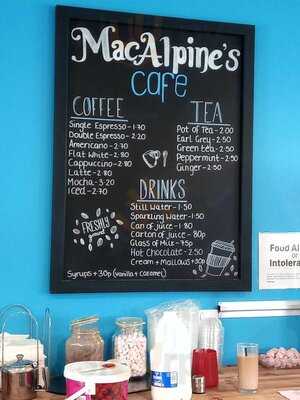 MacAlpine's
Cafe
COFFEE
Single Espresso - 1.70
Double Espresso - 2.20
Americano - 2.70
Flat White - 2.80
Cappuccino - 2.80
Latte - 2.80
Mocha - 3.20
Iced - 2.70
TEA
Pot of Tea - 2.00
Earl Grey - 2.50
Green tea - 2.50
Peppermint - 2.50
Ginger - 2.50
DRINKS
Still Water - 1.50
Sparkling Water - 1.50
Can of juice - 1.50
Carton of juice - 80p
Glass of Milk - 75p
Hot Chocolate - 2.50
Cream + Mallows + 30p
FRESHLY
Syrups + 30p (Vanilla + Caramel)
Food Al
or
Intolera